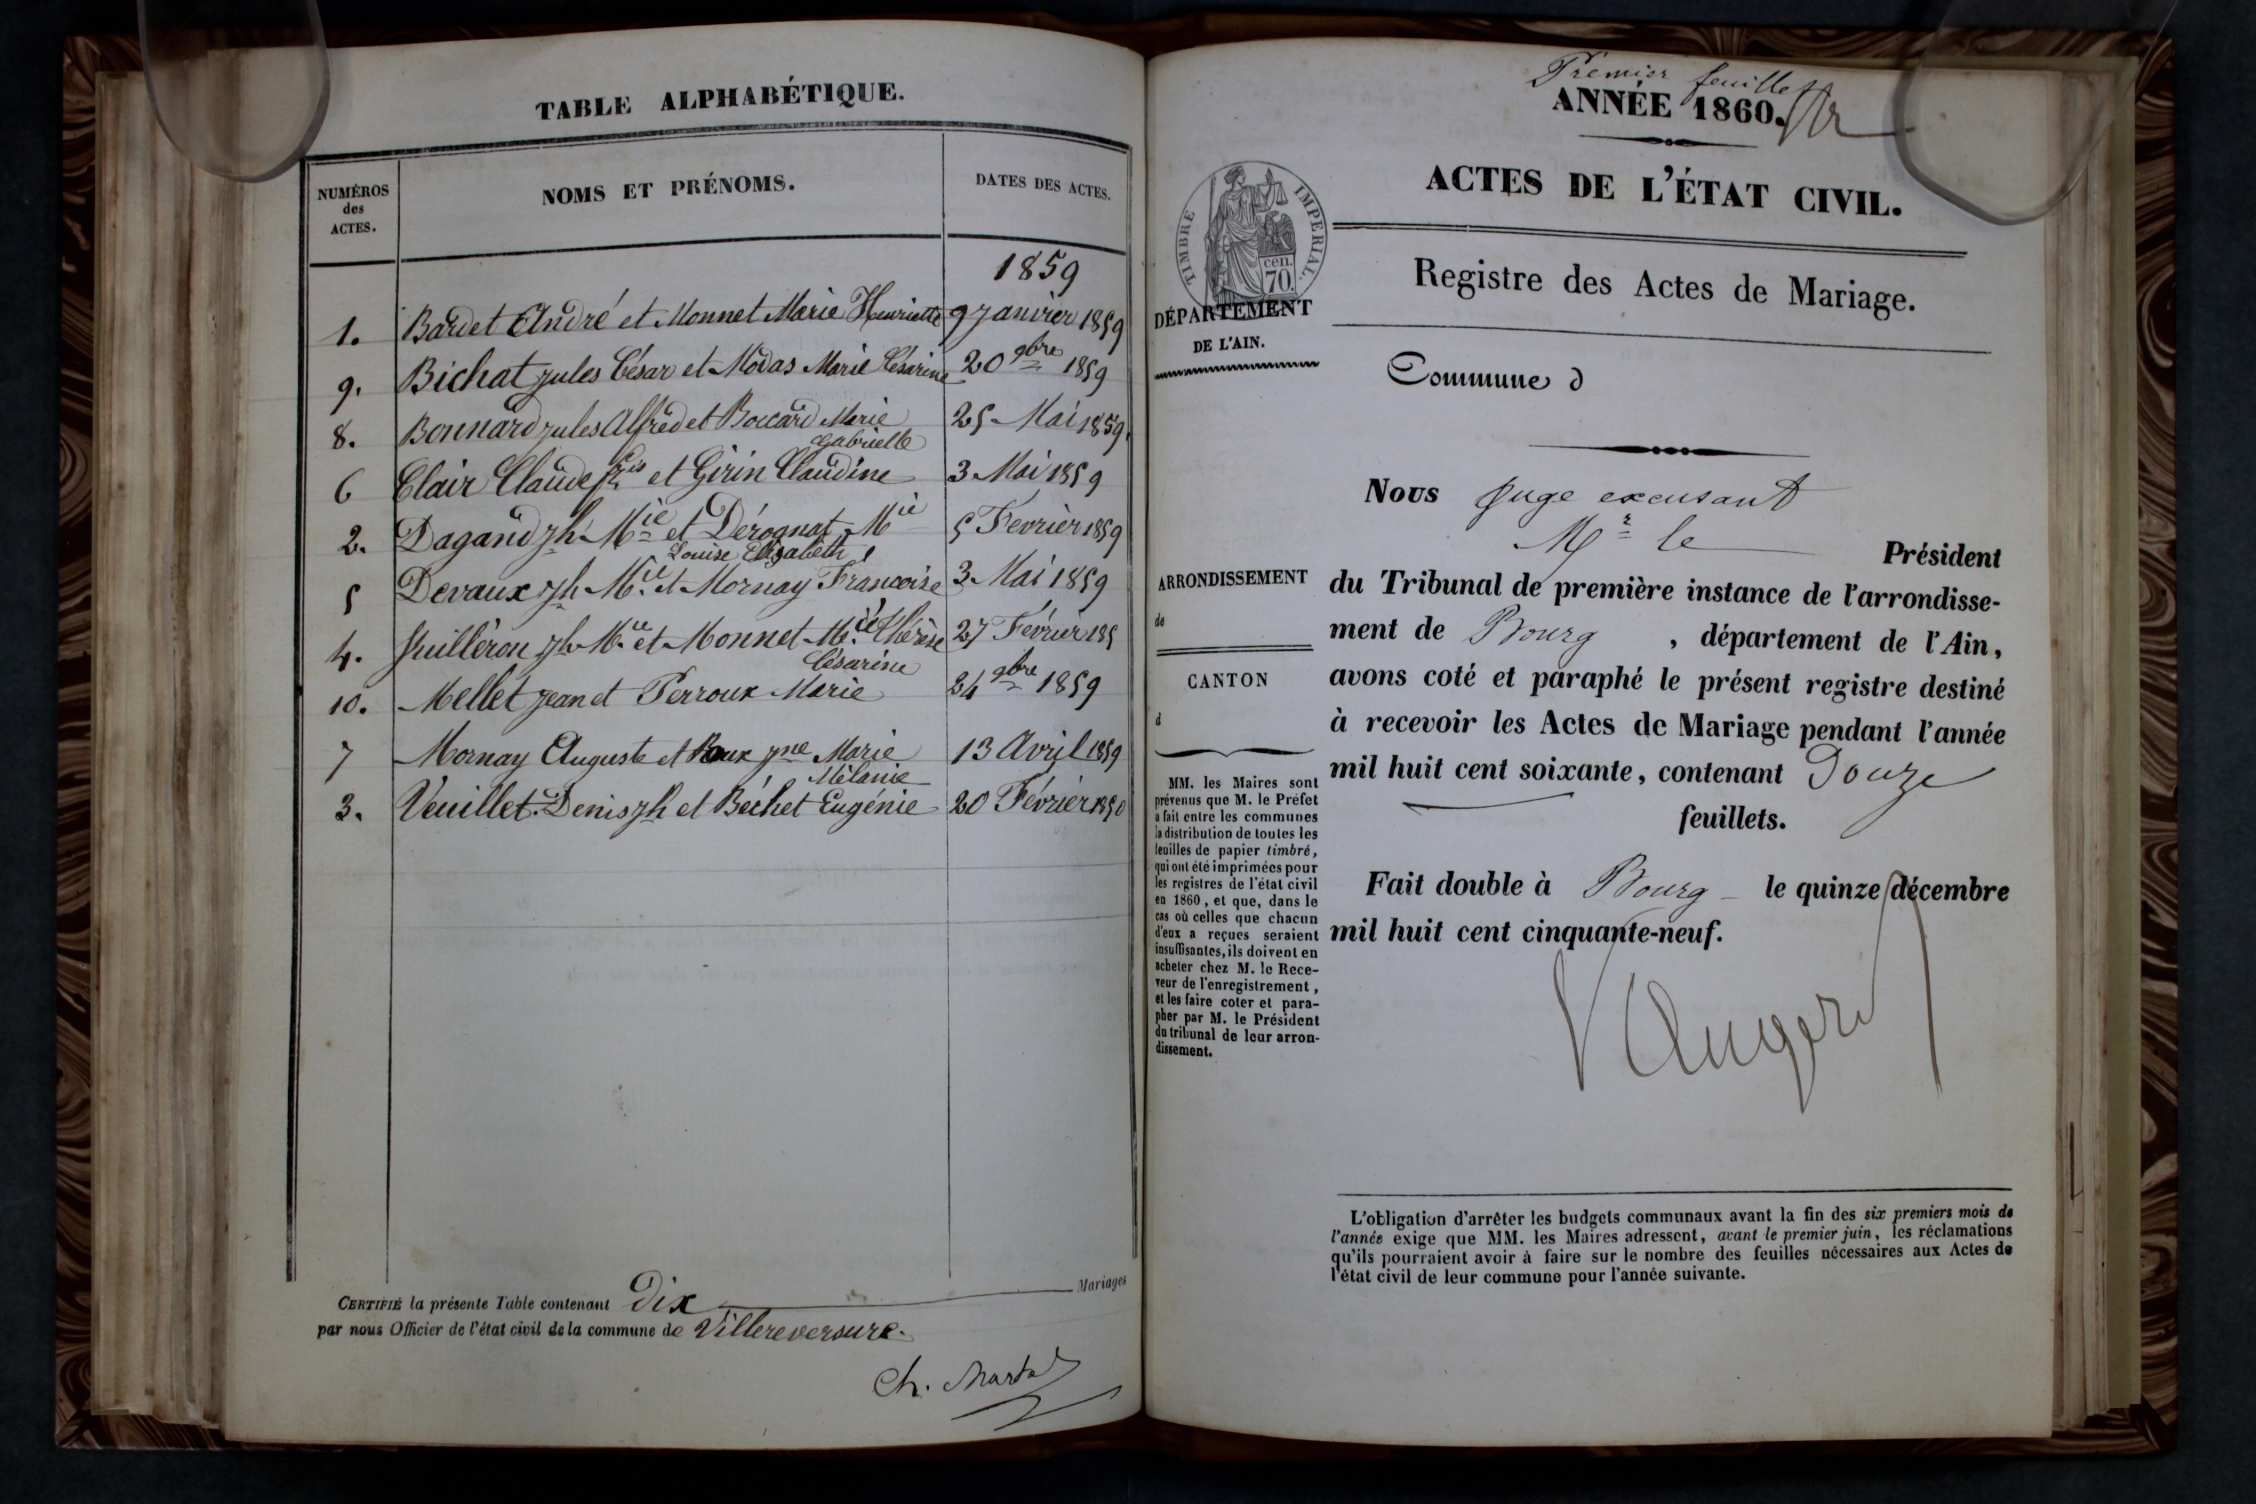 TABLE ALPHABÉTIQUE.
NUMÉROS
des
ACTES.
NOMS ET PRÉNOMS.
DATES DES ACTES.
1859
1. Bardet André et Monnet Marie Henriette 9 Janvier 1859
9. Bichat Jules César et Modas Marie Césarine 20 9bre 1859
8. Bonnard Jules Alfred et Boccard Marie 25 Mai 1859.
Gabrielle
6 Clair Claude fçis et Girin Claudine 3 Mai 1859
2. Dagand Jh Mie et Dérognat Mie 5 Fevrier 1859
Louise Elisabeth
5 Devaux Jh Mie et Mornay Francoise 3 Mai 1859
4. Guilleron Jh Mie et Monnet Mie Thérèse 27 Février 185
Césarine
10. Mellet Jean et Perroux Marie 24 9bre 1859
7 Mornay Auguste et Roux Jne Marie 13 Avril 1859
Mélanie
3. Veuillet Denis Jh et Béchet Eugénie 20 Février 1859
CERTIFIÉ la présente Table contenant Dix Mariages
par nous Officier de l'état civil de la commune de Villereversure.
Ch. Martel
Premier feuillet
ANNÉE 1860.
ACTES DE L'ÉTAT CIVIL.
TIMBRE IMPÉRIAL.
cen.
70.
Registre des Actes de Mariage.
DÉPARTEMENT
DE L'AIN.
Commune d
Nous Juge excusant
Mr le Président
ARRONDISSEMENT
de
CANTON
d
du Tribunal de première instance de l'arrondisse-
ment de Bourg , département de l'Ain,
avons coté et paraphé le présent registre destiné
à recevoir les Actes de Mariage pendant l'année
mil huit cent soixante, contenant Douze
feuillets.
MM. les Maires sont
prévenus que M. le Préfet
a fait entre les communes
la distribution de toutes les
feuilles de papier timbré,
qui ont été imprimées pour
les registres de l'état civil
en 1860, et que, dans le
cas où celles que chacun
d'eux a reçues seraient
insuffisantes, ils doivent en
acheter chez M. le Rece-
veur de l'enregistrement,
et les faire coter et para-
pher par M. le Président
du tribunal de leur arron-
dissement.
Fait double à Bourg le quinze décembre
mil huit cent cinquante-neuf.
L'obligation d'arrêter les budgets communaux avant la fin des six premiers mois de
l'année exige que MM. les Maires adressent, avant le premier juin, les réclamations
qu'ils pourraient avoir à faire sur le nombre des feuilles nécessaires aux Actes de
l'état civil de leur commune pour l'année suivante.